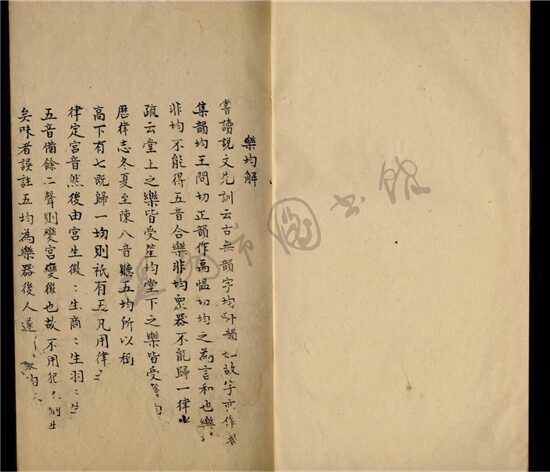 樂均解
嘗讀說文先訓云古無韻字均即韻也故字亦作韵
集韻均王問切正韻作禹慍切均之為言和也樂
非均不能得五音合樂非均衆器不能歸一律
疏云堂上之樂皆受笙均堂下之樂皆受
曆律志冬夏至陳八音聽五均所以極
高下有七旣歸一均則祇有五凡用律
律定宮音然後由宮生徵：生商：生羽：生
五音備餘二聲則變宮變徵也故不用犯
矣味者誤註五均為樂器後人遂
圖書館